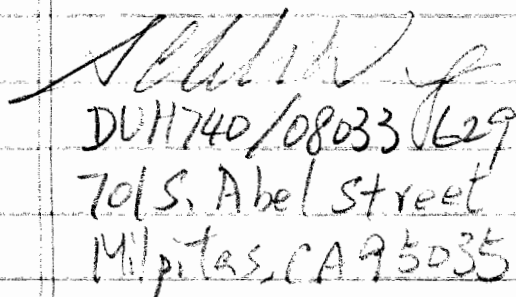 DUH740/08033629
701 S. Abel Street
Milpitas, CA 95035